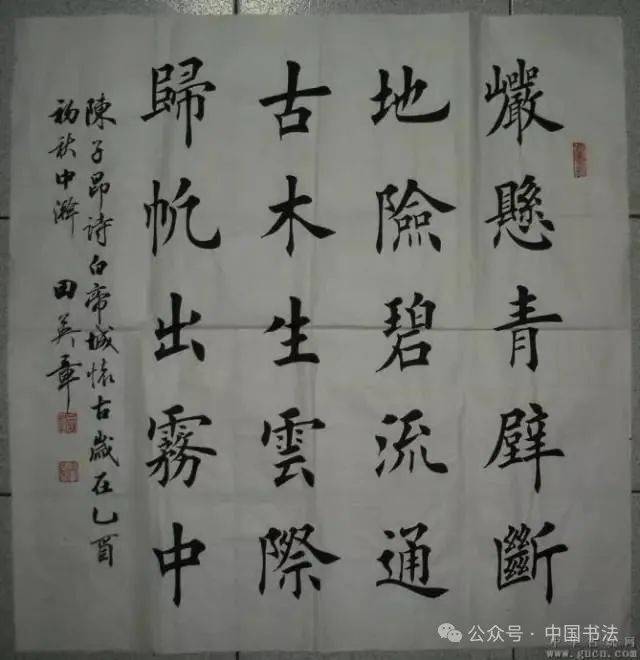 巗懸青壁斷
地險碧流通
古木生雲際
歸帆出霧中
陳子昂詩白帝城懷古歲在乙酉
初秋中澣 田英章
公众号·中国书法
www.gucn.com